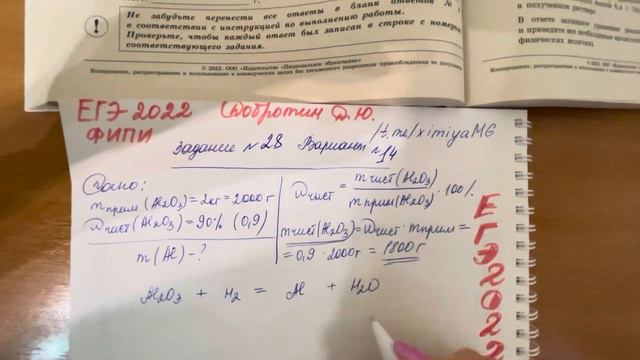 Не забудьте перенести все ответы в бланк ответов №
в соответствии с инструкцией по выполнению работы.
Проверьте, чтобы каждый ответ был записан в строке с номером
соответствующего задания.
© 2022. ООО «Издательство «Национальное образование»
Копирование, распространение и использование в коммерческих целях без письменного разрешения правообладателя не допускается
и полученном
В ответе запишите
и приведите все необходимые
физических величин).
Копирование, распространение
ЕГЭ 2022 Добротин Д.Ю.
ФИПИ
/t.me/ximiyaMG
Задание №28 Вариант №14
Дано:
mприм (Al2O3) = 2кг = 2000 г
ωчист (Al2O3) = 90% (0,9)
m(Al) - ?
ωчист = mчист(Al2O3) / mприм(Al2O3) · 100%
mчист(Al2O3) = ωчист · mприм =
= 0,9 · 2000г = 1800 г
Al2O3 + H2 = Al + H2O
ЕГЭ 2022